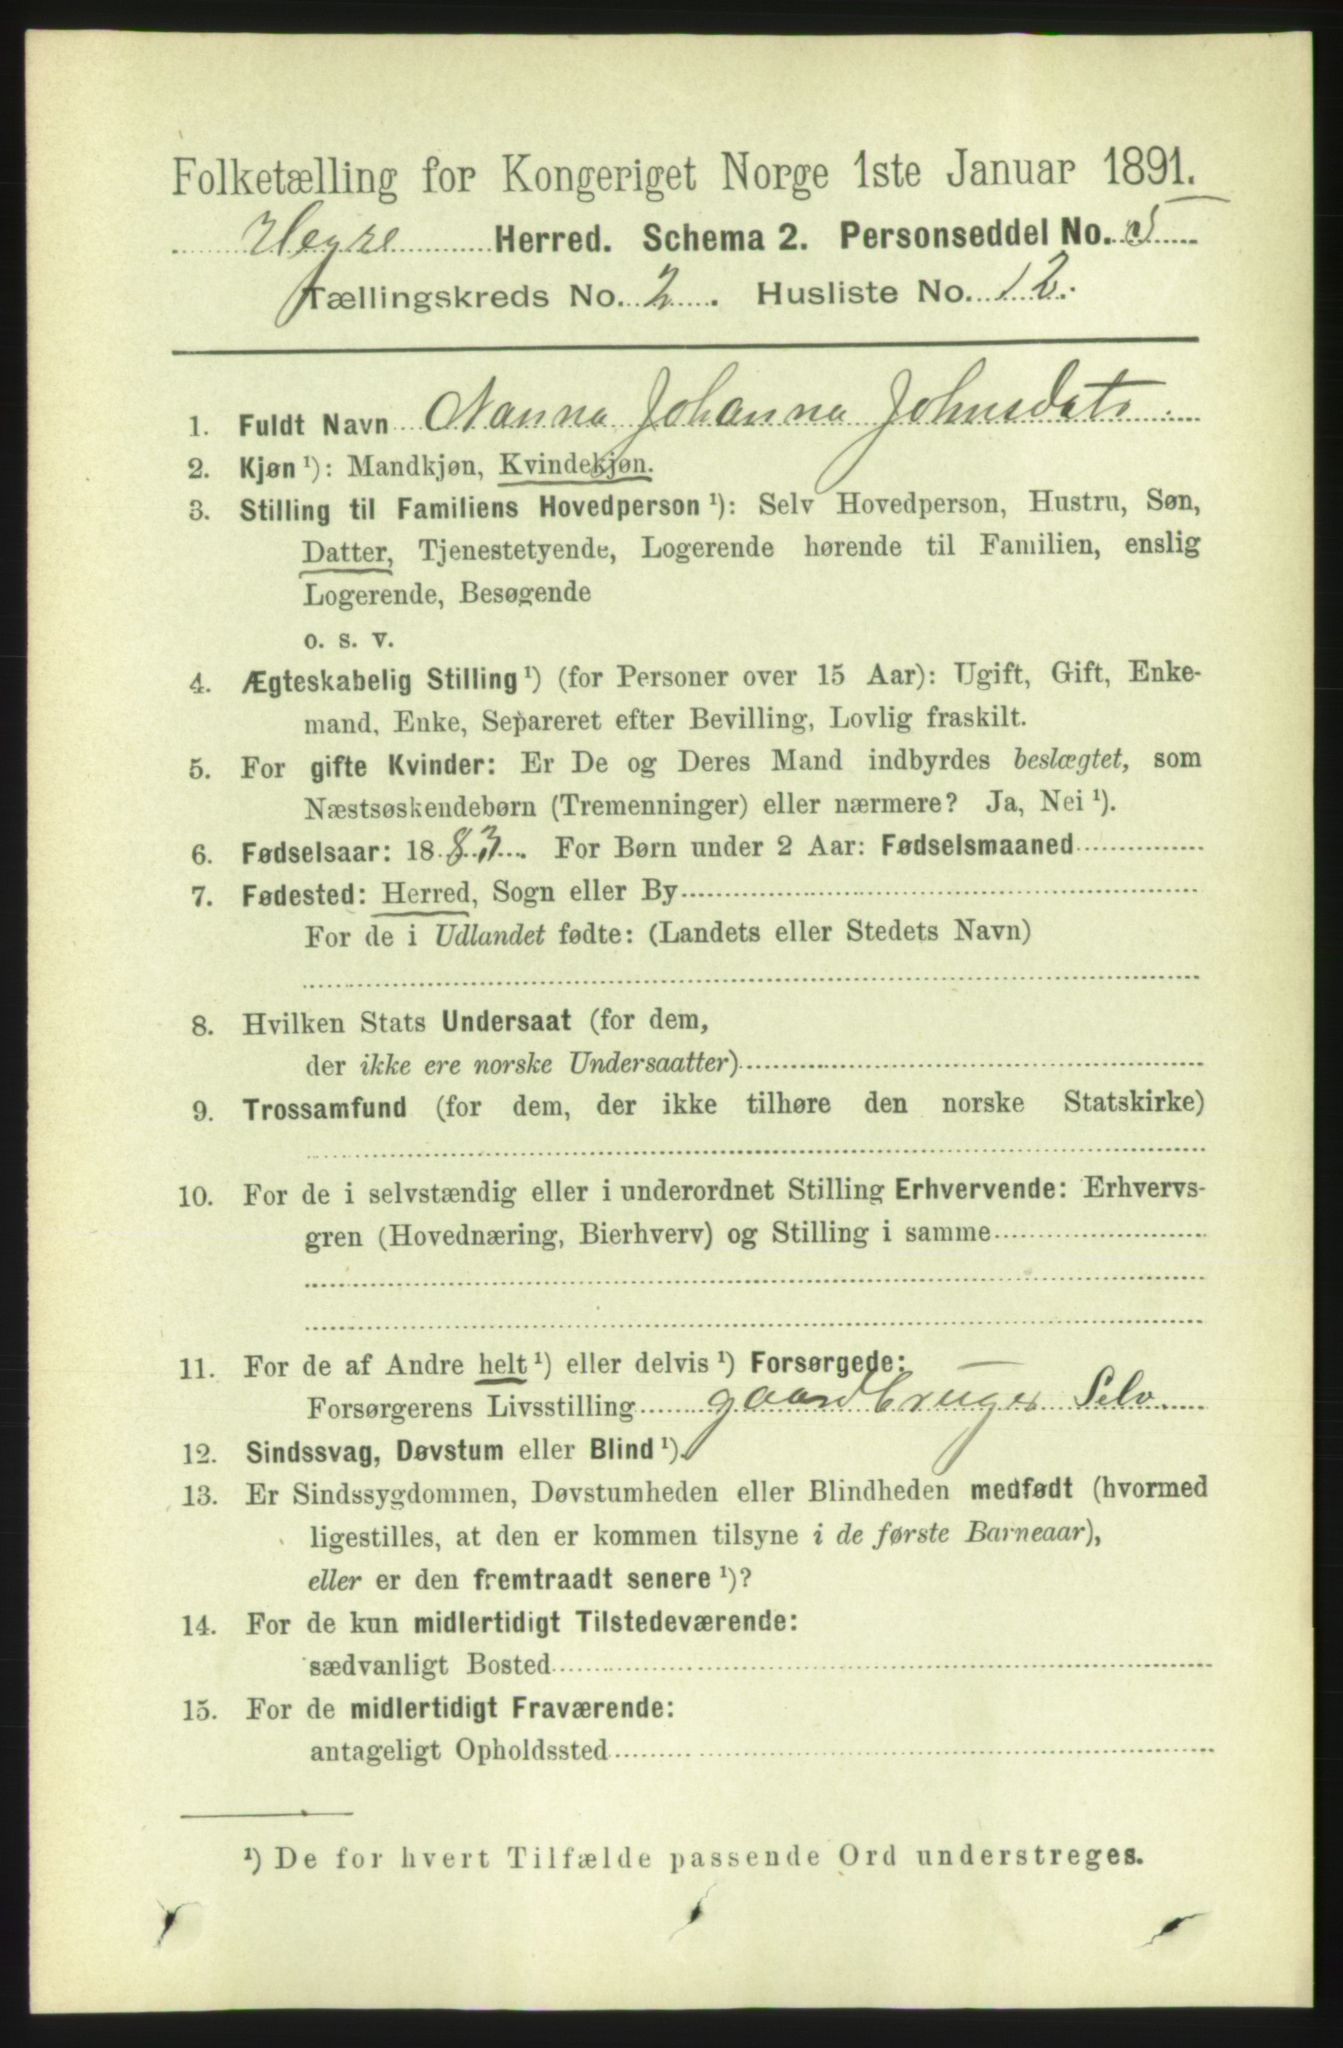 Folketælling for Kongeriget Norge 1ste Januar 1891.
Hegre Herred. Schema 2. Personseddel No. 5
Tællingskreds No. 2. Husliste No. 12.
1. Fuldt Navn Nanna Johanna Johnsdatr
2. Kjøn ¹): Mandkjøn, Kvindekjøn.
3. Stilling til Familiens Hovedperson ¹): Selv Hovedperson, Hustru, Søn,
Datter, Tjenestetyende, Logerende hørende til Familien, enslig
Logerende, Besøgende
o. s. v.
4. Ægteskabelig Stilling ¹) (for Personer over 15 Aar): Ugift, Gift, Enke-
mand, Enke, Separeret efter Bevilling, Lovlig fraskilt.
5. For gifte Kvinder: Er De og Deres Mand indbyrdes beslægtet, som
Næstsøskendebørn (Tremenninger) eller nærmere? Ja, Nei ¹).
6. Fødselsaar: 1883. For Børn under 2 Aar: Fødselsmaaned
7. Fødested: Herred, Sogn eller By
For de i Udlandet fødte: (Landets eller Stedets Navn)
8. Hvilken Stats Undersaat (for dem,
der ikke ere norske Undersaatter)
9. Trossamfund (for dem, der ikke tilhøre den norske Statskirke)
10. For de i selvstændig eller i underordnet Stilling Erhvervende: Erhvervs-
gren (Hovednæring, Bierhverv) og Stilling i samme
11. For de af Andre helt ¹) eller delvis ¹) Forsørgede:
Forsørgerens Livsstilling gaardbruger Selv
12. Sindssvag, Døvstum eller Blind ¹).
13. Er Sindssygdommen, Døvstumheden eller Blindheden medfødt (hvormed
ligestilles, at den er kommen tilsyne i de første Barneaar),
eller er den fremtraadt senere ¹)?
14. For de kun midlertidigt Tilstedeværende:
sædvanligt Bosted
15. For de midlertidigt Fraværende:
antageligt Opholdssted
¹) De for hvert Tilfælde passende Ord understreges.